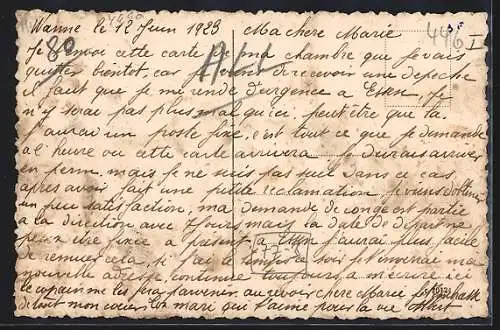 Wanne le 12 Juin 1923 Ma chere Marie
80 446 I
Je t'envoi cette carte de ma chambre que je vais
quitter bientot, car je viens de recevoir une depeche
il faut que je me rende d'urgence a Essen, Je
n'y serai pas plus mal qu'ici, peut être que la
J'aurai un poste fixe, c'est tout ce que je demande
a l'heure ou cette carte arrivera je
en perm, mais je ne suis pas seul dans ce cas
apres avoir fait une petite reclamation, je viens d'obtenir
un peu satisfaction, ma demande de conge est partie
a la direction avec 7 jours mais la date de depart ne
peut être fixée a present, a Essen J'aurai plus facile
de remuer cela, je t'enverrai ma
nouvelle adresse, continue toujours a m'ecrire ici
le copain me les fera parvenir, au revoir chere Marie
de tout mon coeur ton mari qui t'aime pour la vie